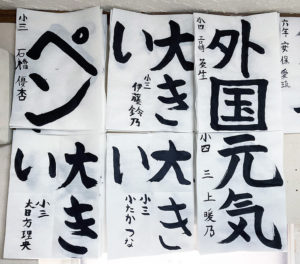 六年 安保 愛
外国
小四 英生
大きい
小三 伊藤 鈴乃
ペン
小三 石橋 優杏
元気
小四 三上 暖乃
大きい
小三 小たか つな
大きい
小三 大日方 理央